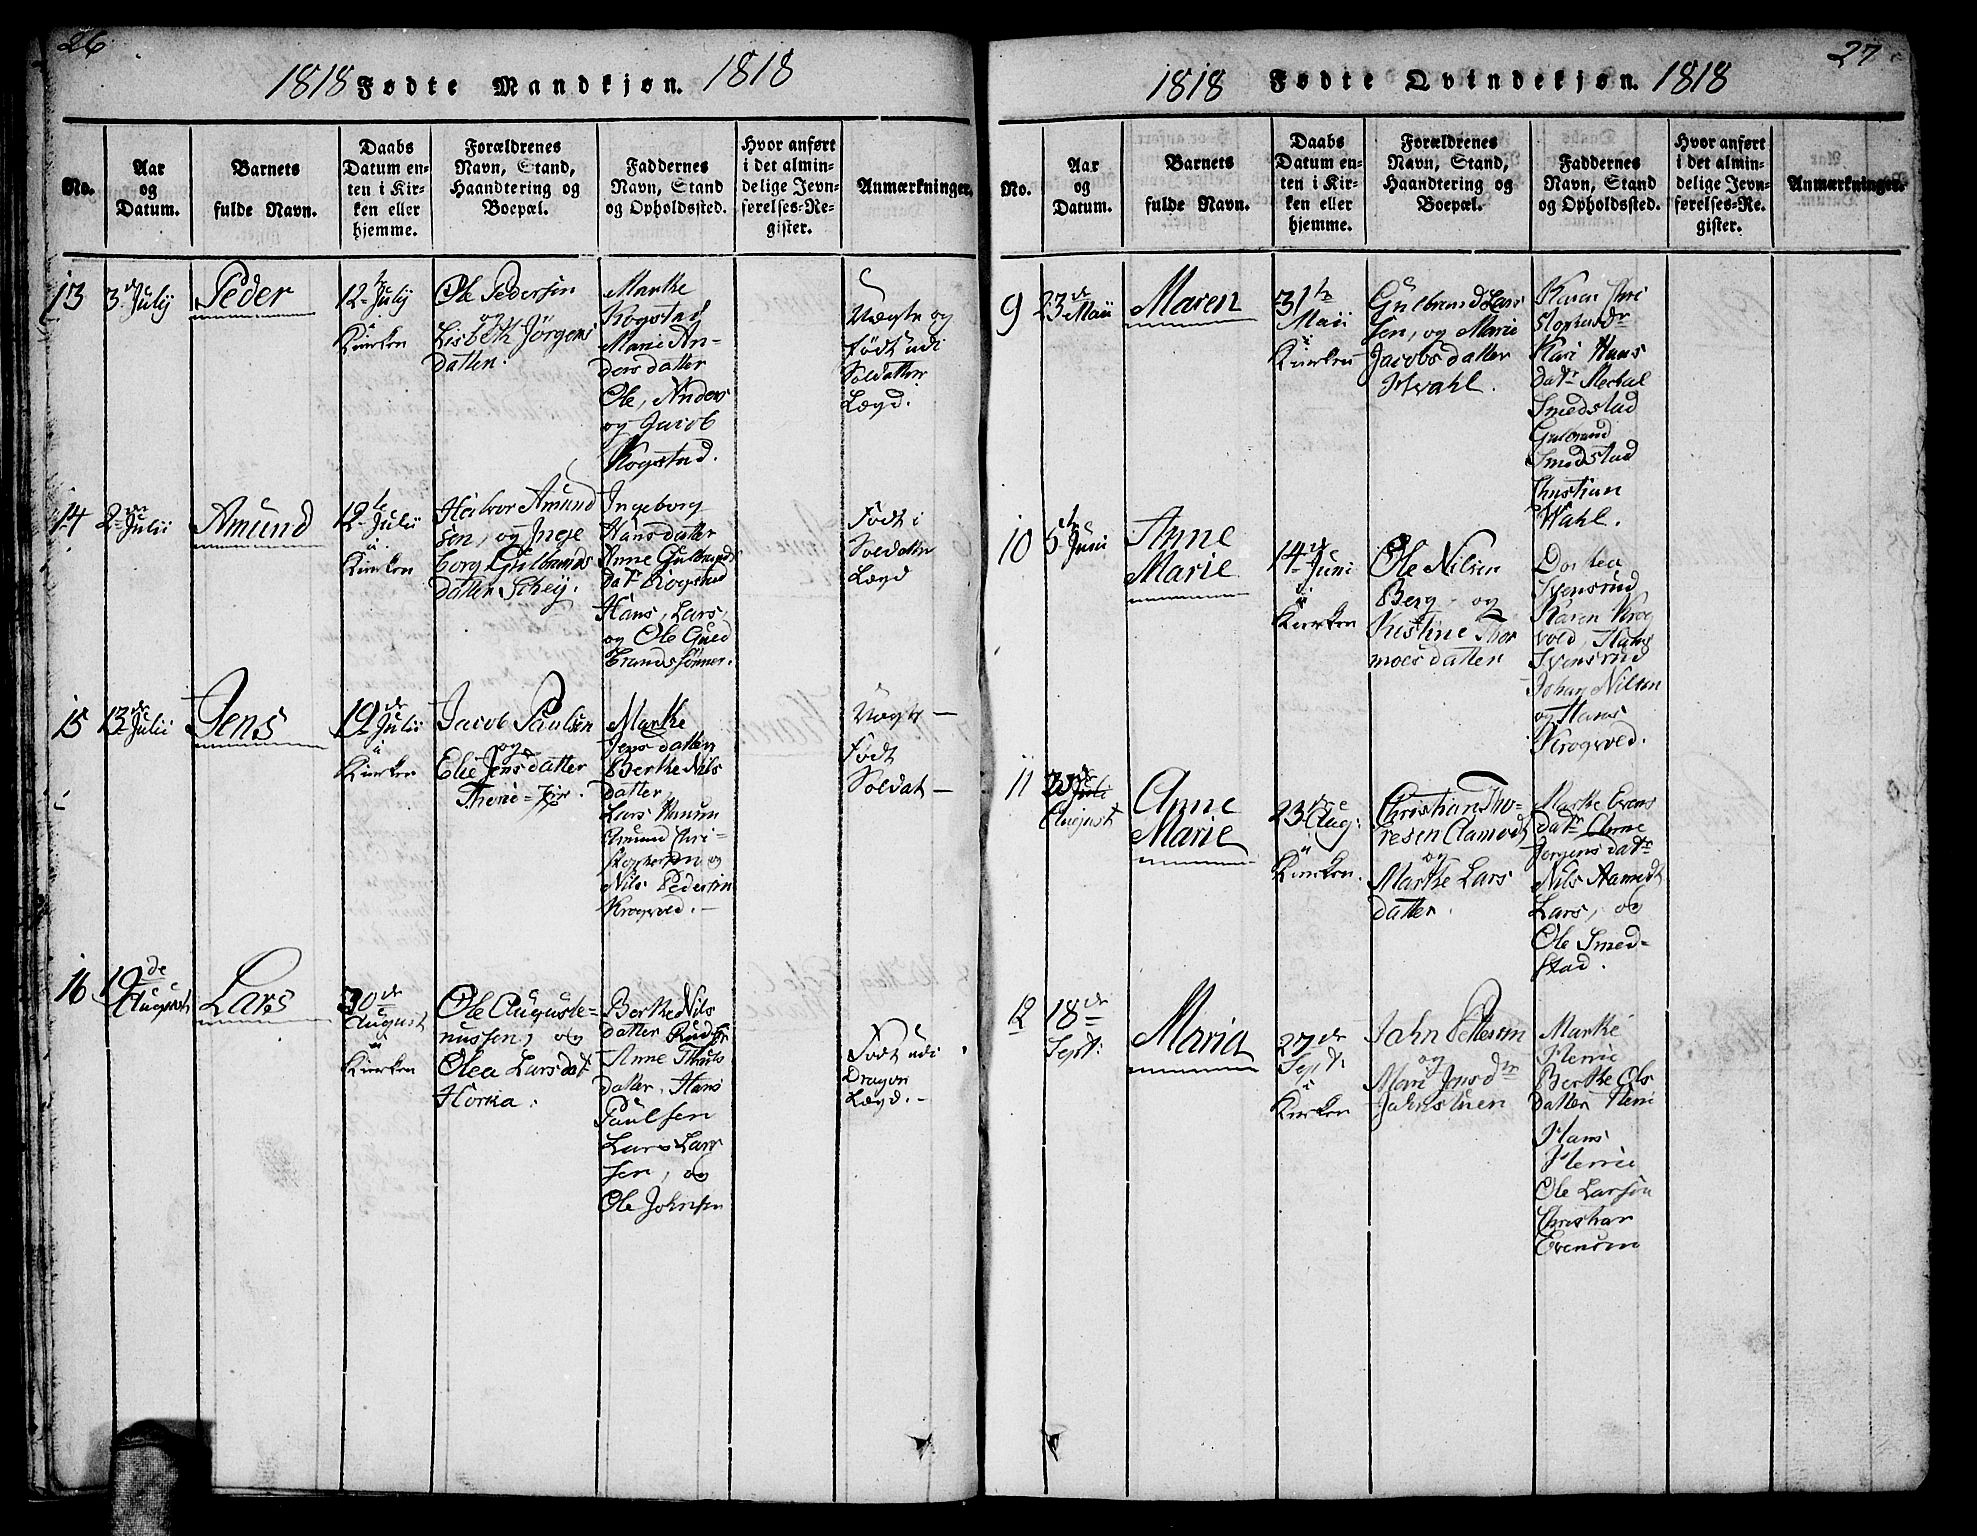 26
1818 Fødte Mandkjøn. 1818
No.
Aar
og
Datum.
Barnets
fulde Navn.
Daabs
Datum en-
ten i Kir-
ken eller
hjemme.
Forældrenes
Navn, Stand,
Haandtering og
Boepæl.
Faddernes
Navn, Stand
og Opholdssted.
Hvor anført
i det almin-
delige Jevn-
førelses-Re-
gister.
Anmærkninger.
13
3die July
Peder
12te July
i
Kirken
Ole Pedersen
og
Lisbeth Jörgens
datter.
Marthe
Kogstad
Marie An-
dersdatter
Ole, Anders
og Jacob
Kogstad.
Vægte og
Födt udi
Soldatter
Lægd.
14
2den Julii
Amund
12te
Julii
i
Kirken
Halvor Amund
sen, og Inge
borg Gulbrands
datter Scheij.
Ingeborg
Hansdatter
Anne Gulbrands
datr Kogstad
Hans, Lars,
og Ole Guld
brandssönner.
Födt i
Soldatter
Lægd
15
13de
Julii
Jens
19de
Julii
i
Kirken
Jacob Paulsen
og
Elie Jensdatter
Marthe
Jensdatter
Berthe Nils
datter,
Lars
Amund Chri-
stophersen og
Nils Pedersen
Krogsved.
Vægte
Födt
Soldat
16
19de
August
Lars
30de
August
i
Kirken
Ole Auguste-
nussen, og
Olea Larsdat
Horna.
Berthe Nils
datter Rud
Anne
datter, Hans
Paulsen
Lars Lar
sen, og
Ole Johnsen
Födt udi
Dragon
Lægd.
27
1818 Fødte Qvindekjøn. 1818
No.
Aar
og
Datum.
Barnets
fulde Navn.
Daabs
Datum en-
ten i Kir-
ken eller
hjemme.
Forældrenes
Navn, Stand,
Haandtering og
Boepæl.
Faddernes
Navn, Stand
og Opholdssted.
Hvor anført
i det almin-
delige Jevn-
førelses-Re-
gister.
Anmærkninger.
9
23de Maii
Maren
31te
Maii
i
Kirken
Gulbrand Lars
sen, og Marie
Jacobsdatter
Wahl.
Karen Chri
stophersdr
Kari Hans
datr
Smedstad
Gulbrand
Smedstad
Christian
Wahl.
10
5te Juni
Anne
Marie
14de
Juni
i
Kirken
Ole Nilsen
Berg og
Kistine Thor
moesdatter
Dorthea
Svensrud
Karen Krog
sved, Hans
Svensrud
Johan Nilsen
og Hans
Krogsved.
11
August
Anne
Marie
23de Aug:
i
Kirken.
Christian Tho-
resen Aamodt
og
Marthe Lars
datter.
Marthe Evens
datr Anne
Jorgensdatr
Nils Aamodt
Lars, og
Ole Smed-
stad.
12
18de
Sept:
Maria
27de
Sept:
i
Kirken
John Pettersen
og
Mari Jensdtr
Marthe
Berthe Ols
datter
Hans
Ole Larsön
Christian
Evensen